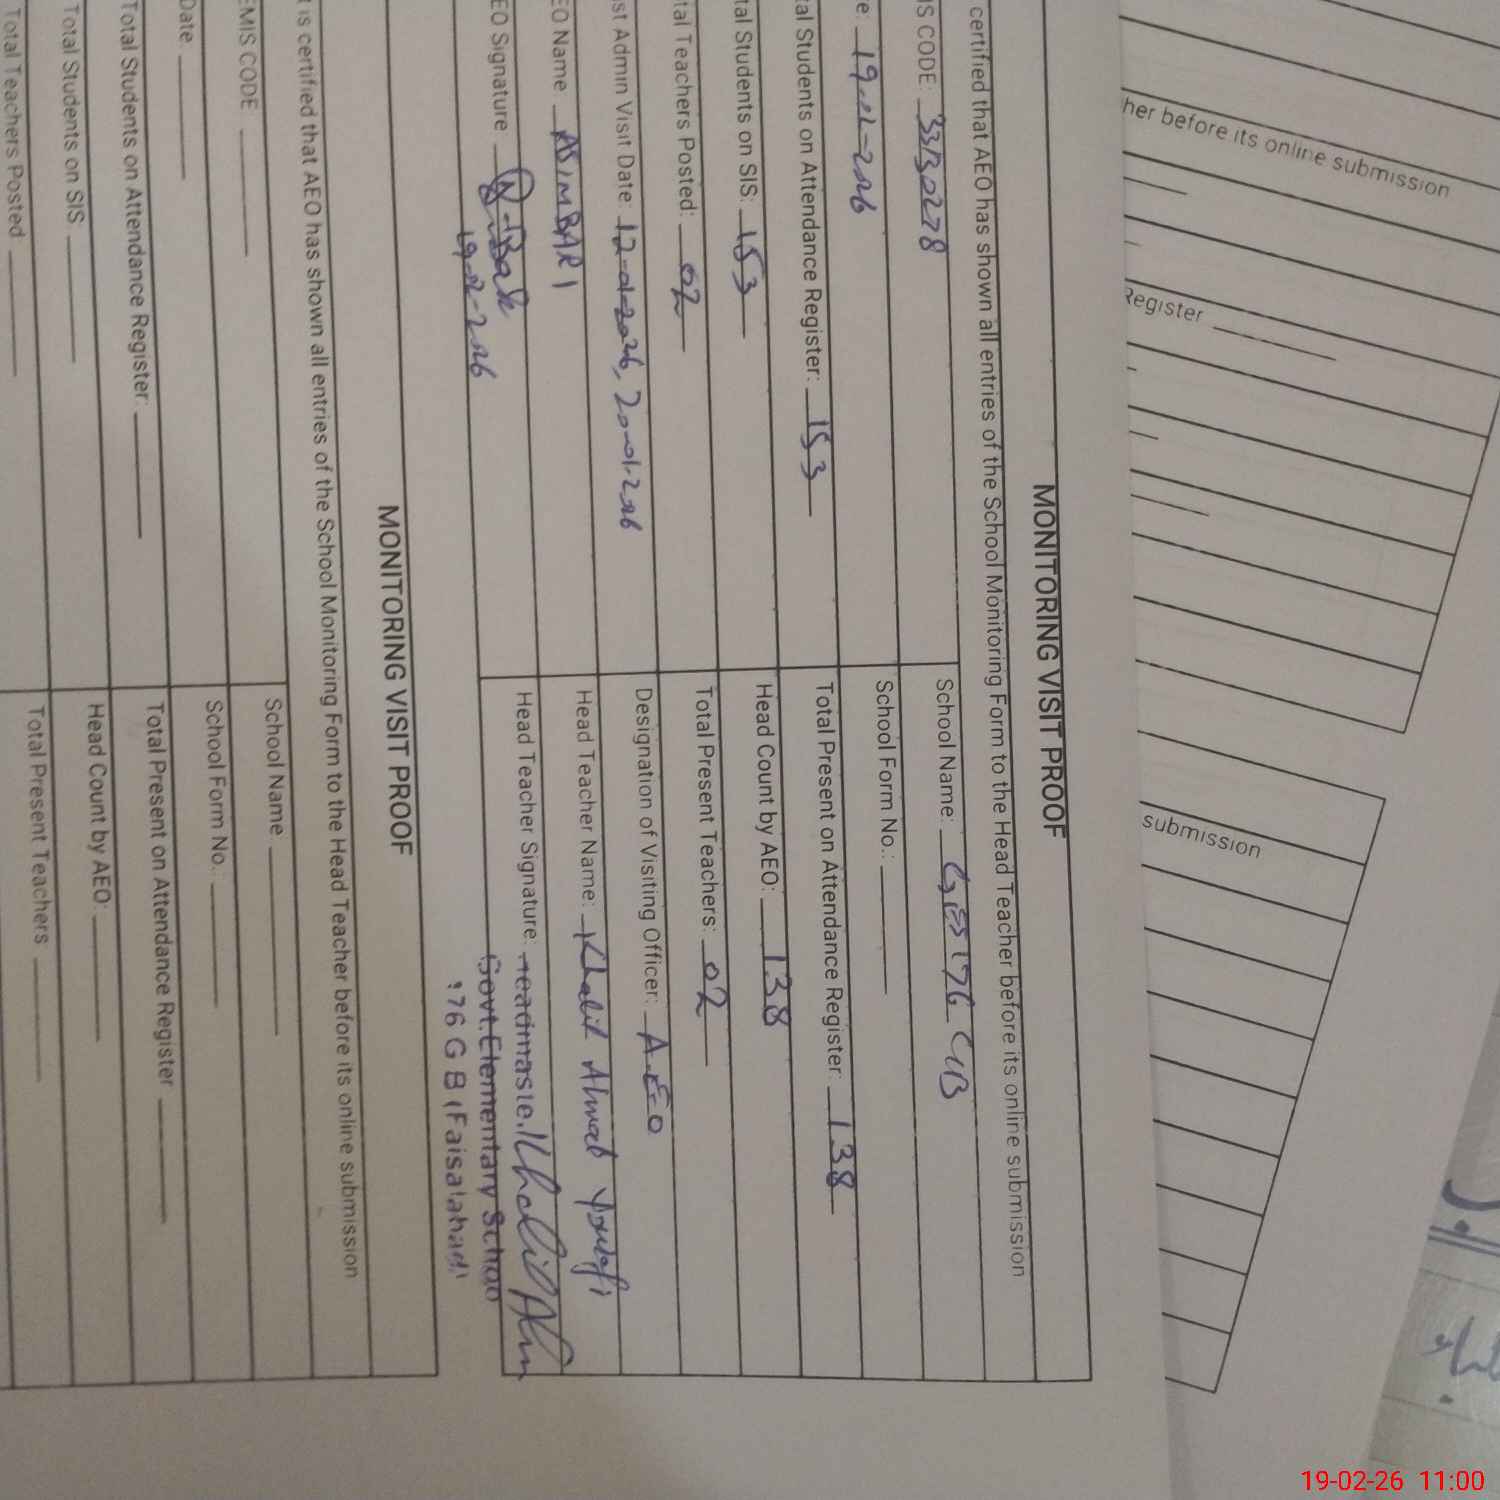 MONITORING VISIT PROOF
certified that AEO has shown all entries of the School Monitoring Form to the Head Teacher before its online submission
IS CODE: 33130278 School Name: GES 176 GB
e: 19-02-2026 School Form No.:
tal Students on Attendance Register: 153 Total Present on Attendance Register: 138
tal Students on SIS: 153 Head Count by AEO: 138
tal Teachers Posted: 02 Total Present Teachers: 02
st Admin Visit Date: 12-01-2026, 20-01-2026 Designation of Visiting Officer: A.E.O
EO Name ASIM BARI Head Teacher Name: Khalil Ahmad
EO Signature Head Teacher Signature: Khalil
19-02-2026 Govt. Elementary Schoo
176 G B (Faisalabad)
MONITORING VISIT PROOF
t is certified that AEO has shown all entries of the School Monitoring Form to the Head Teacher before its online submission
EMIS CODE School Name:
Date: School Form No.:
Total Students on Attendance Register: Total Present on Attendance Register
Total Students on SIS: Head Count by AEO:
Total Teachers Posted Total Present Teachers
her before its online submission
Register
submission
19-02-26 11:00